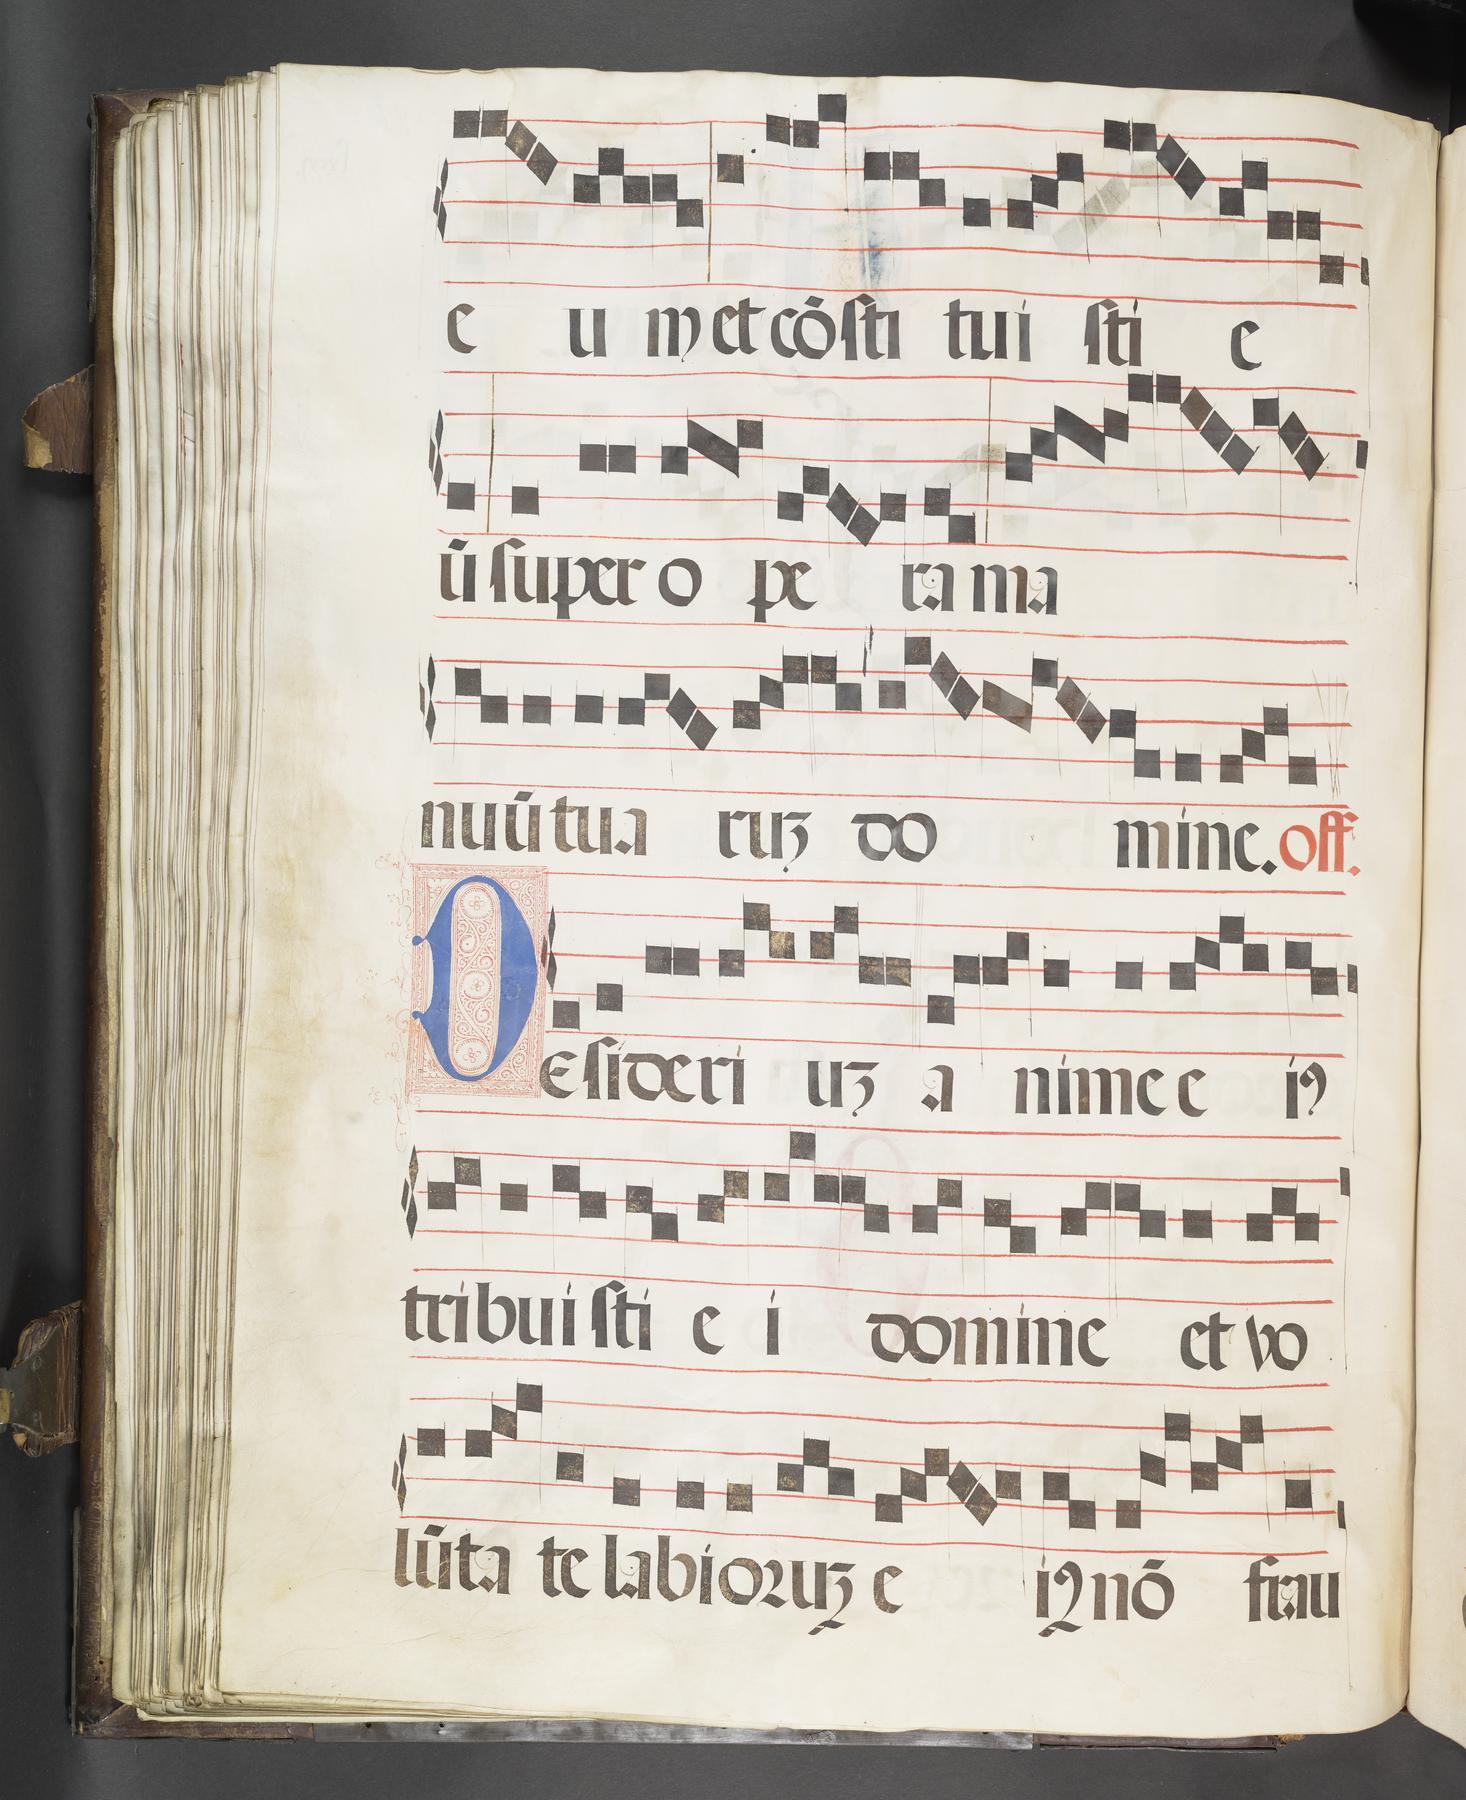 e u m et cōsti tui sti e
ū super o pe ra ma
nuū tua ruꝫ do mine. off.
DEsideri uꝫ a nime e iꝰ
tribui sti e i domine et vo
lūta te labioꝛuꝫ e iꝰ nō frau